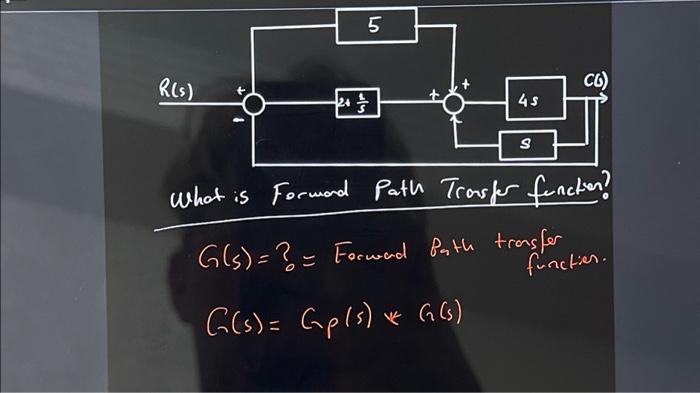 5
R(s)
+
-
+
+
4s
C(s)
s
What is Forward Path Transfer function?
G(s) = ? = Forward Path transfer
function.
G(s) = Gp(s) * G(s)